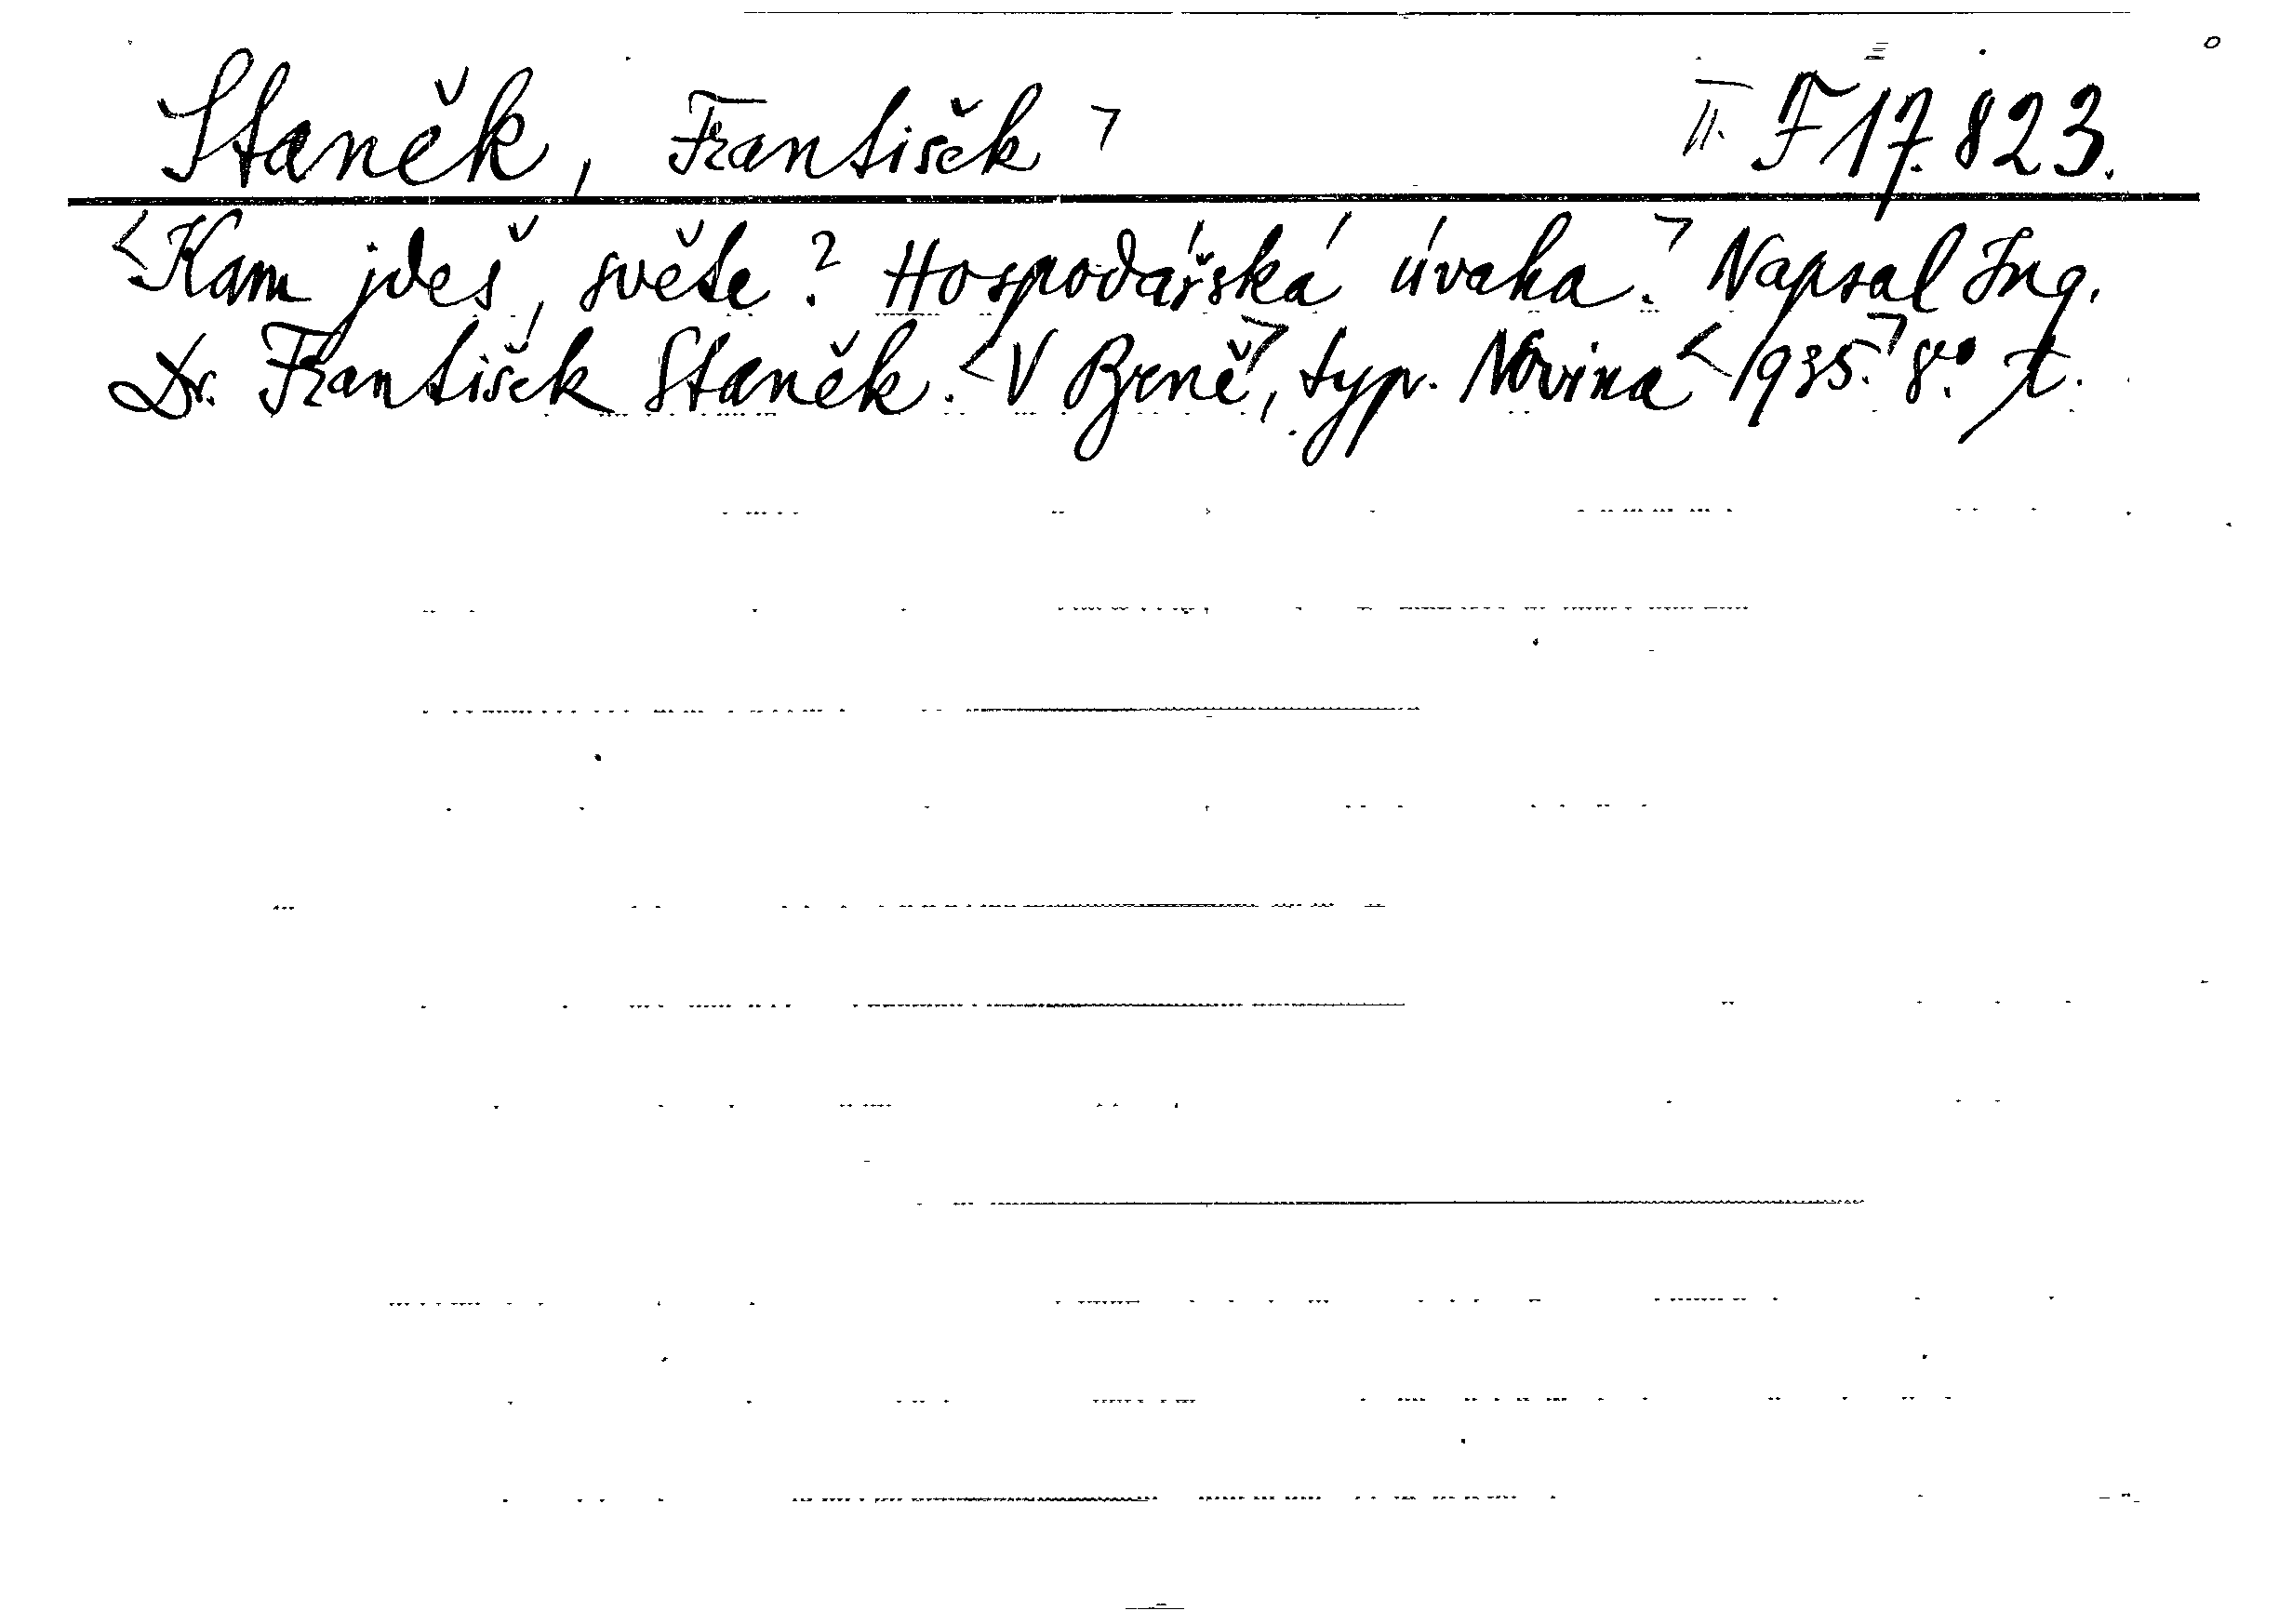 Staněk, František ¬ II. F 17.823.
<Kam jdeš, světe? Hospodářská úvaha.¬ Napsal Ing.
Dr. František Staněk. <V Brně¬, typ. Novina <1935.¬ 8°.